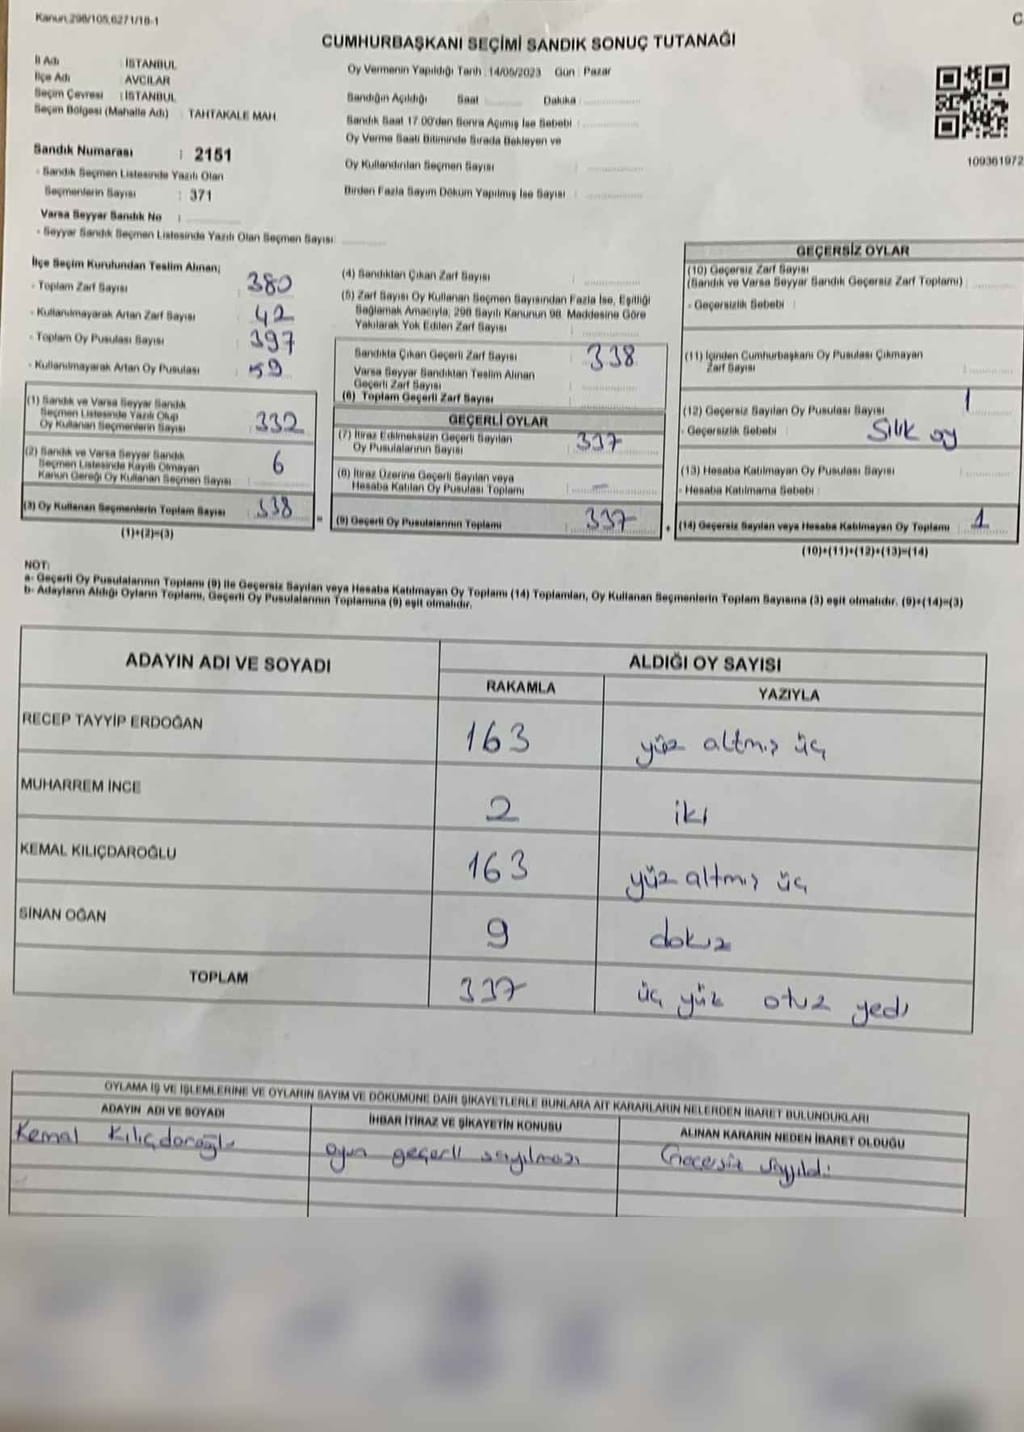 Kanun.298/105,6271/18-1
C
CUMHURBAŞKANI SEÇİMİ SANDIK SONUÇ TUTANAĞI
İl Adı : İSTANBUL
İlçe Adı : AVCILAR
Seçim Çevresi : İSTANBUL
Seçim Bölgesi (Mahalle Adı) : TAHTAKALE MAH.
Sandık Numarası : 2151
- Sandık Seçmen Listesinde Yazılı Olan
Seçmenlerin Sayısı : 371
Varsa Seyyar Sandık No :
- Seyyar Sandık Seçmen Listesinde Yazılı Olan Seçmen Sayısı:
Oy Vermenin Yapıldığı Tarih : 14/05/2023 Gün : Pazar
Sandığın Açıldığı Saat Dakika :
Sandık Saat 17.00'den Sonra Açmış İse Sebebi :
Oy Verme Saati Bitiminde Sırada Bekleyen ve
Oy Kullandırılan Seçmen Sayısı :
Birden Fazla Sayım Döküm Yapılmış İse Sayısı :
109361972
İlçe Seçim Kurulundan Teslim Alınan;
- Toplam Zarf Sayısı : 380
- Kullanılmayarak Artan Zarf Sayısı : 42
- Toplam Oy Pusulası Sayısı : 397
- Kullanılmayarak Artan Oy Pusulası : 59
(1) Sandık ve Varsa Seyyar Sandık
Seçmen Listesinde Yazılı Olup
Oy Kullanan Seçmenlerin Sayısı 332
(2) Sandık ve Varsa Seyyar Sandık
Seçmen Listesinde Kayıtlı Olmayan
Kanun Gereği Oy Kullanan Seçmen Sayısı 6
(3) Oy Kullanan Seçmenlerin Toplam Sayısı 338
(1)+(2)=(3)
=
(4) Sandıktan Çıkan Zarf Sayısı :
(5) Zarf Sayısı Oy Kullanan Seçmen Sayısından Fazla İse, Eşitliği
Sağlamak Amacıyla, 298 Sayılı Kanunun 98. Maddesine Göre
Yakılarak Yok Edilen Zarf Sayısı :
Sandıkta Çıkan Geçerli Zarf Sayısı 338
Varsa Seyyar Sandıktan Teslim Alınan
Geçerli Zarf Sayısı
(6) Toplam Geçerli Zarf Sayısı
GEÇERLİ OYLAR
(7) İtiraz Edilmeksizin Geçerli Sayılan
Oy Pusulalarının Sayısı 337
(8) İtiraz Üzerine Geçerli Sayılan veya
Hesaba Katılan Oy Pusulası Toplamı —
(9) Geçerli Oy Pusulalarının Toplamı 337
+
GEÇERSİZ OYLAR
(10) Geçersiz Zarf Sayısı
(Sandık ve Varsa Seyyar Sandık Geçersiz Zarf Toplamı) :
- Geçersizlik Sebebi :
(11) İçinden Cumhurbaşkanı Oy Pusulası Çıkmayan
Zarf Sayısı
(12) Geçersiz Sayılan Oy Pusulası Sayısı 1
- Geçersizlik Sebebi : Silik oy
(13) Hesaba Katılmayan Oy Pusulası Sayısı
- Hesaba Katılmama Sebebi :
(14) Geçersiz Sayılan veya Hesaba Katılmayan Oy Toplamı 1
(10)+(11)+(12)+(13)=(14)
NOT:
a- Geçerli Oy Pusulalarının Toplamı (9) ile Geçersiz Sayılan veya Hesaba Katılmayan Oy Toplamı (14) Toplamları, Oy Kullanan Seçmenlerin Toplam Sayısına (3) eşit olmalıdır. (9)+(14)=(3)
b- Adayların Aldığı Oyların Toplamı, Geçerli Oy Pusulalarının Toplamına (9) eşit olmalıdır.
ADAYIN ADI VE SOYADI ALDIĞI OY SAYISI
RAKAMLA YAZIYLA
RECEP TAYYİP ERDOĞAN 163 yüz altmış üç
MUHARREM İNCE 2 iki
KEMAL KILIÇDAROĞLU 163 yüz altmış üç
SİNAN OĞAN 9 dokuz
TOPLAM 337 üç yüz otuz yedi
OYLAMA İŞ VE İŞLEMLERİNE VE OYLARIN SAYIM VE DÖKÜMÜNE DAİR ŞİKAYETLERLE BUNLARA AİT KARARLARIN NELERDEN İBARET BULUNDUKLARI
ADAYIN ADI VE SOYADI İHBAR İTİRAZ VE ŞİKAYETİN KONUSU ALINAN KARARIN NEDEN İBARET OLDUĞU
Kemal Kılıçdaroğlu oyun geçerli sayılması Geçersiz sayıldı